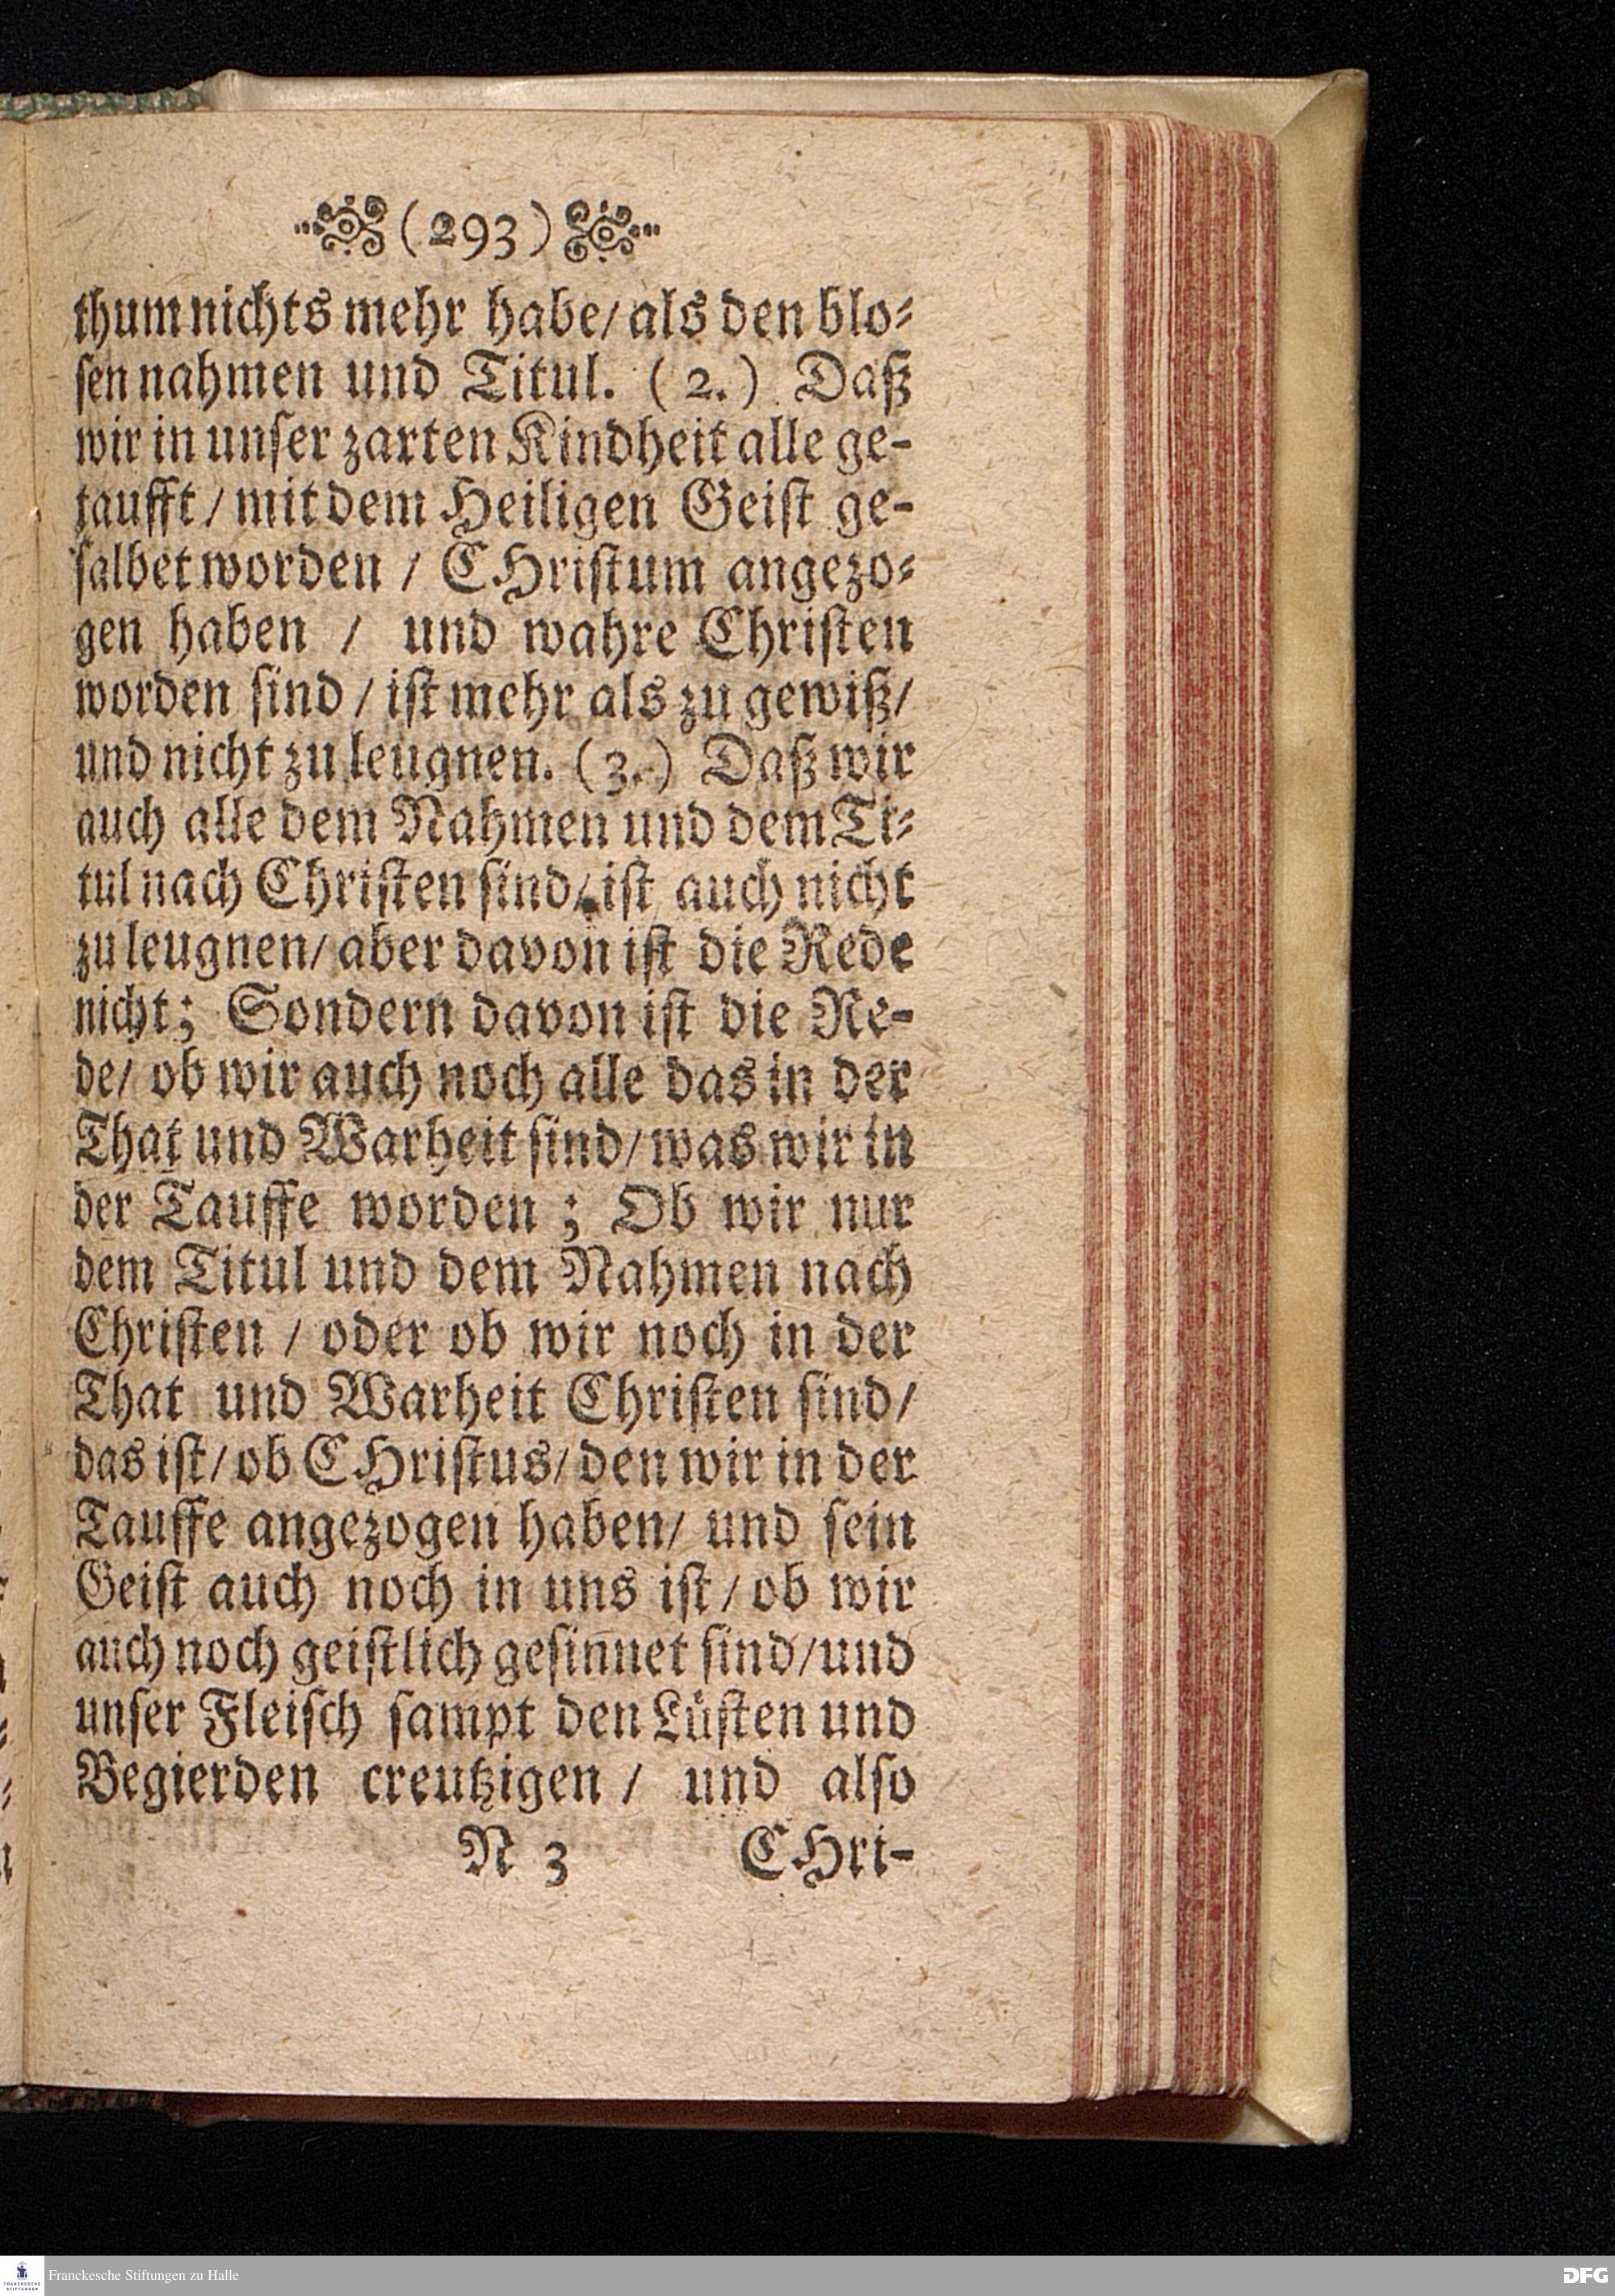 (293)
thum nichts mehr habe/ als den blo⸗
sen nahmen und Titul. (2.) Daß
wir in unser zarten Kindheit alle ge-
taufft/ mit dem Heiligen Geist ge-
salbet worden / CHristum angezo⸗
gen haben / und wahre Christen
worden sind / ist mehr als zu gewiß/
und nicht zu leugnen. (3.) Daß wir
auch alle dem Nahmen und dem Ti⸗
tul nach Christen sind/ ist auch nicht
zu leugnen/ aber davon ist die Rede
nicht; Sondern davon ist die Re-
de/ ob wir auch noch alle das in der
That und Warheit sind/ was wir in
der Tauffe worden ; Ob wir nur
dem Titul und dem Nahmen nach
Christen / oder ob wir noch in der
That und Warheit Christen sind/
das ist/ ob CHristus/ den wir in der
Tauffe angezogen haben/ und sein
Geist auch noch in uns ist / ob wir
auch noch geistlich gesinnet sind/und
unser Fleisch sampt den Lüsten und
Begierden creutzigen / und also
N 3 CHri-
FRANCKESCHE STIFTUNGEN
Franckesche Stiftungen zu Halle
DFG